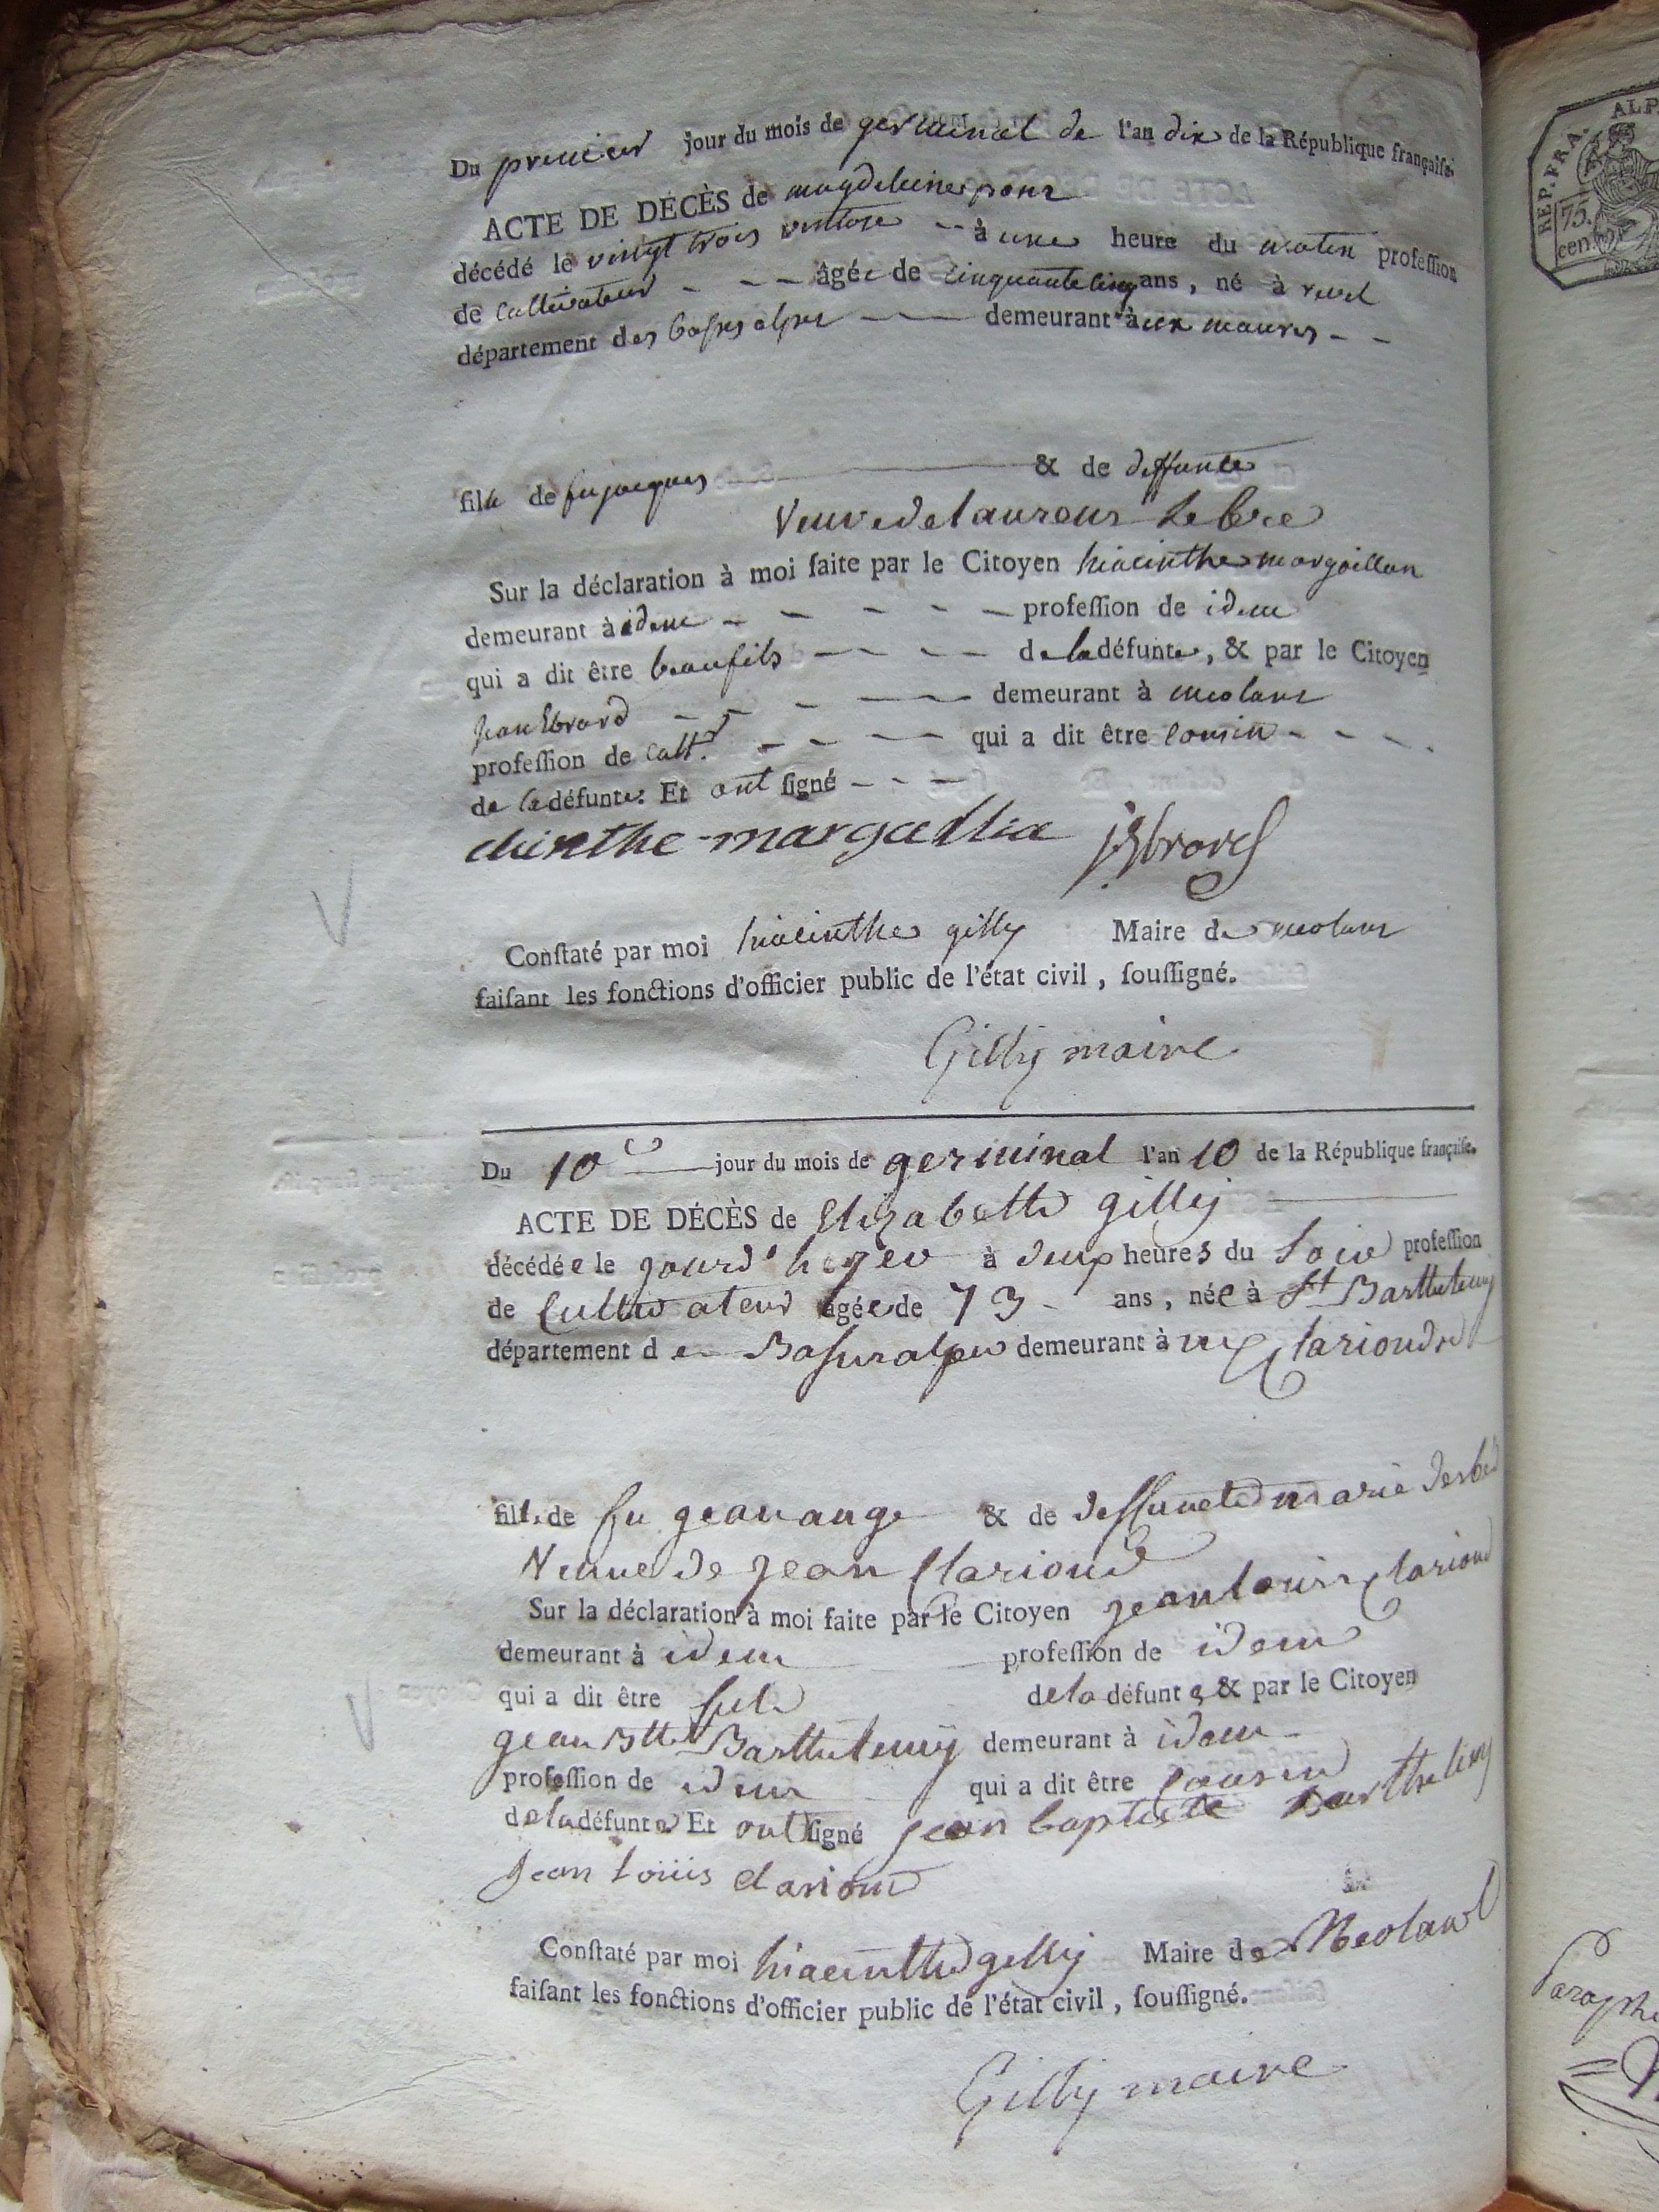 Du premier jour du mois de germinal de l'an dix de la République françaiſe.
ACTE DE DÉCÈS de magdeleine pons
décédé le vingt trois ventose -- à une heure du matin profeſſion
de Cultivateur - - - âgée de cinquante cinq ans, né à revel
département des basses alpes demeurant aux maures - -
fille de feu jacques & de deffunte
Veuve de laurens Lebre
Sur la déclaration à moi faite par le Citoyen hiacinthe margaillan
demeurant à idem - - - - - - profeſſion de idem
qui a dit être beaufils - - - - de la défunte, & par le Citoyen
jean Ebrard - - - - - demeurant à meolans
profeſſion de cultr. - - - - qui a dit être cousin - - - -
de la défunte. Et ont ſigné - - -
margallia JEbrard
Conſtaté par moi hiacinthe gilly Maire de meolans
faiſant les fonctions d'officier public de l'état civil, ſouſſigné.
Gilly maire
Du 10e jour du mois de germinal l'an 10 de la République françaiſe.
ACTE DE DÉCÈS de Elizabetth gilly
décédée le jourd'hyer à deux heures du soir profeſſion
de Cultivateur âgée de 73 - ans, née à St Barthelemy
département de Basses alpes demeurant à
fille de fu jean ange & de deffuncte marie
Veuve de jean Clarioud
Sur la déclaration à moi faite par le Citoyen jean louis Clarioud
demeurant à idem profeſſion de idem
qui a dit être de la défunte & par le Citoyen
gean Btte Barthelemy demeurant à idem -
profeſſion de idem qui a dit être cousin
de la défunte Et ont ſigné jean baptiste Barthelemy
Jean Louis clarioud
Conſtaté par moi hiacinthe gilly Maire de Meolans
faiſant les fonctions d'officier public de l'état civil, ſouſſigné.
Gilly maire
REP. FRA. ALP.
75.
cen.
Paraphé